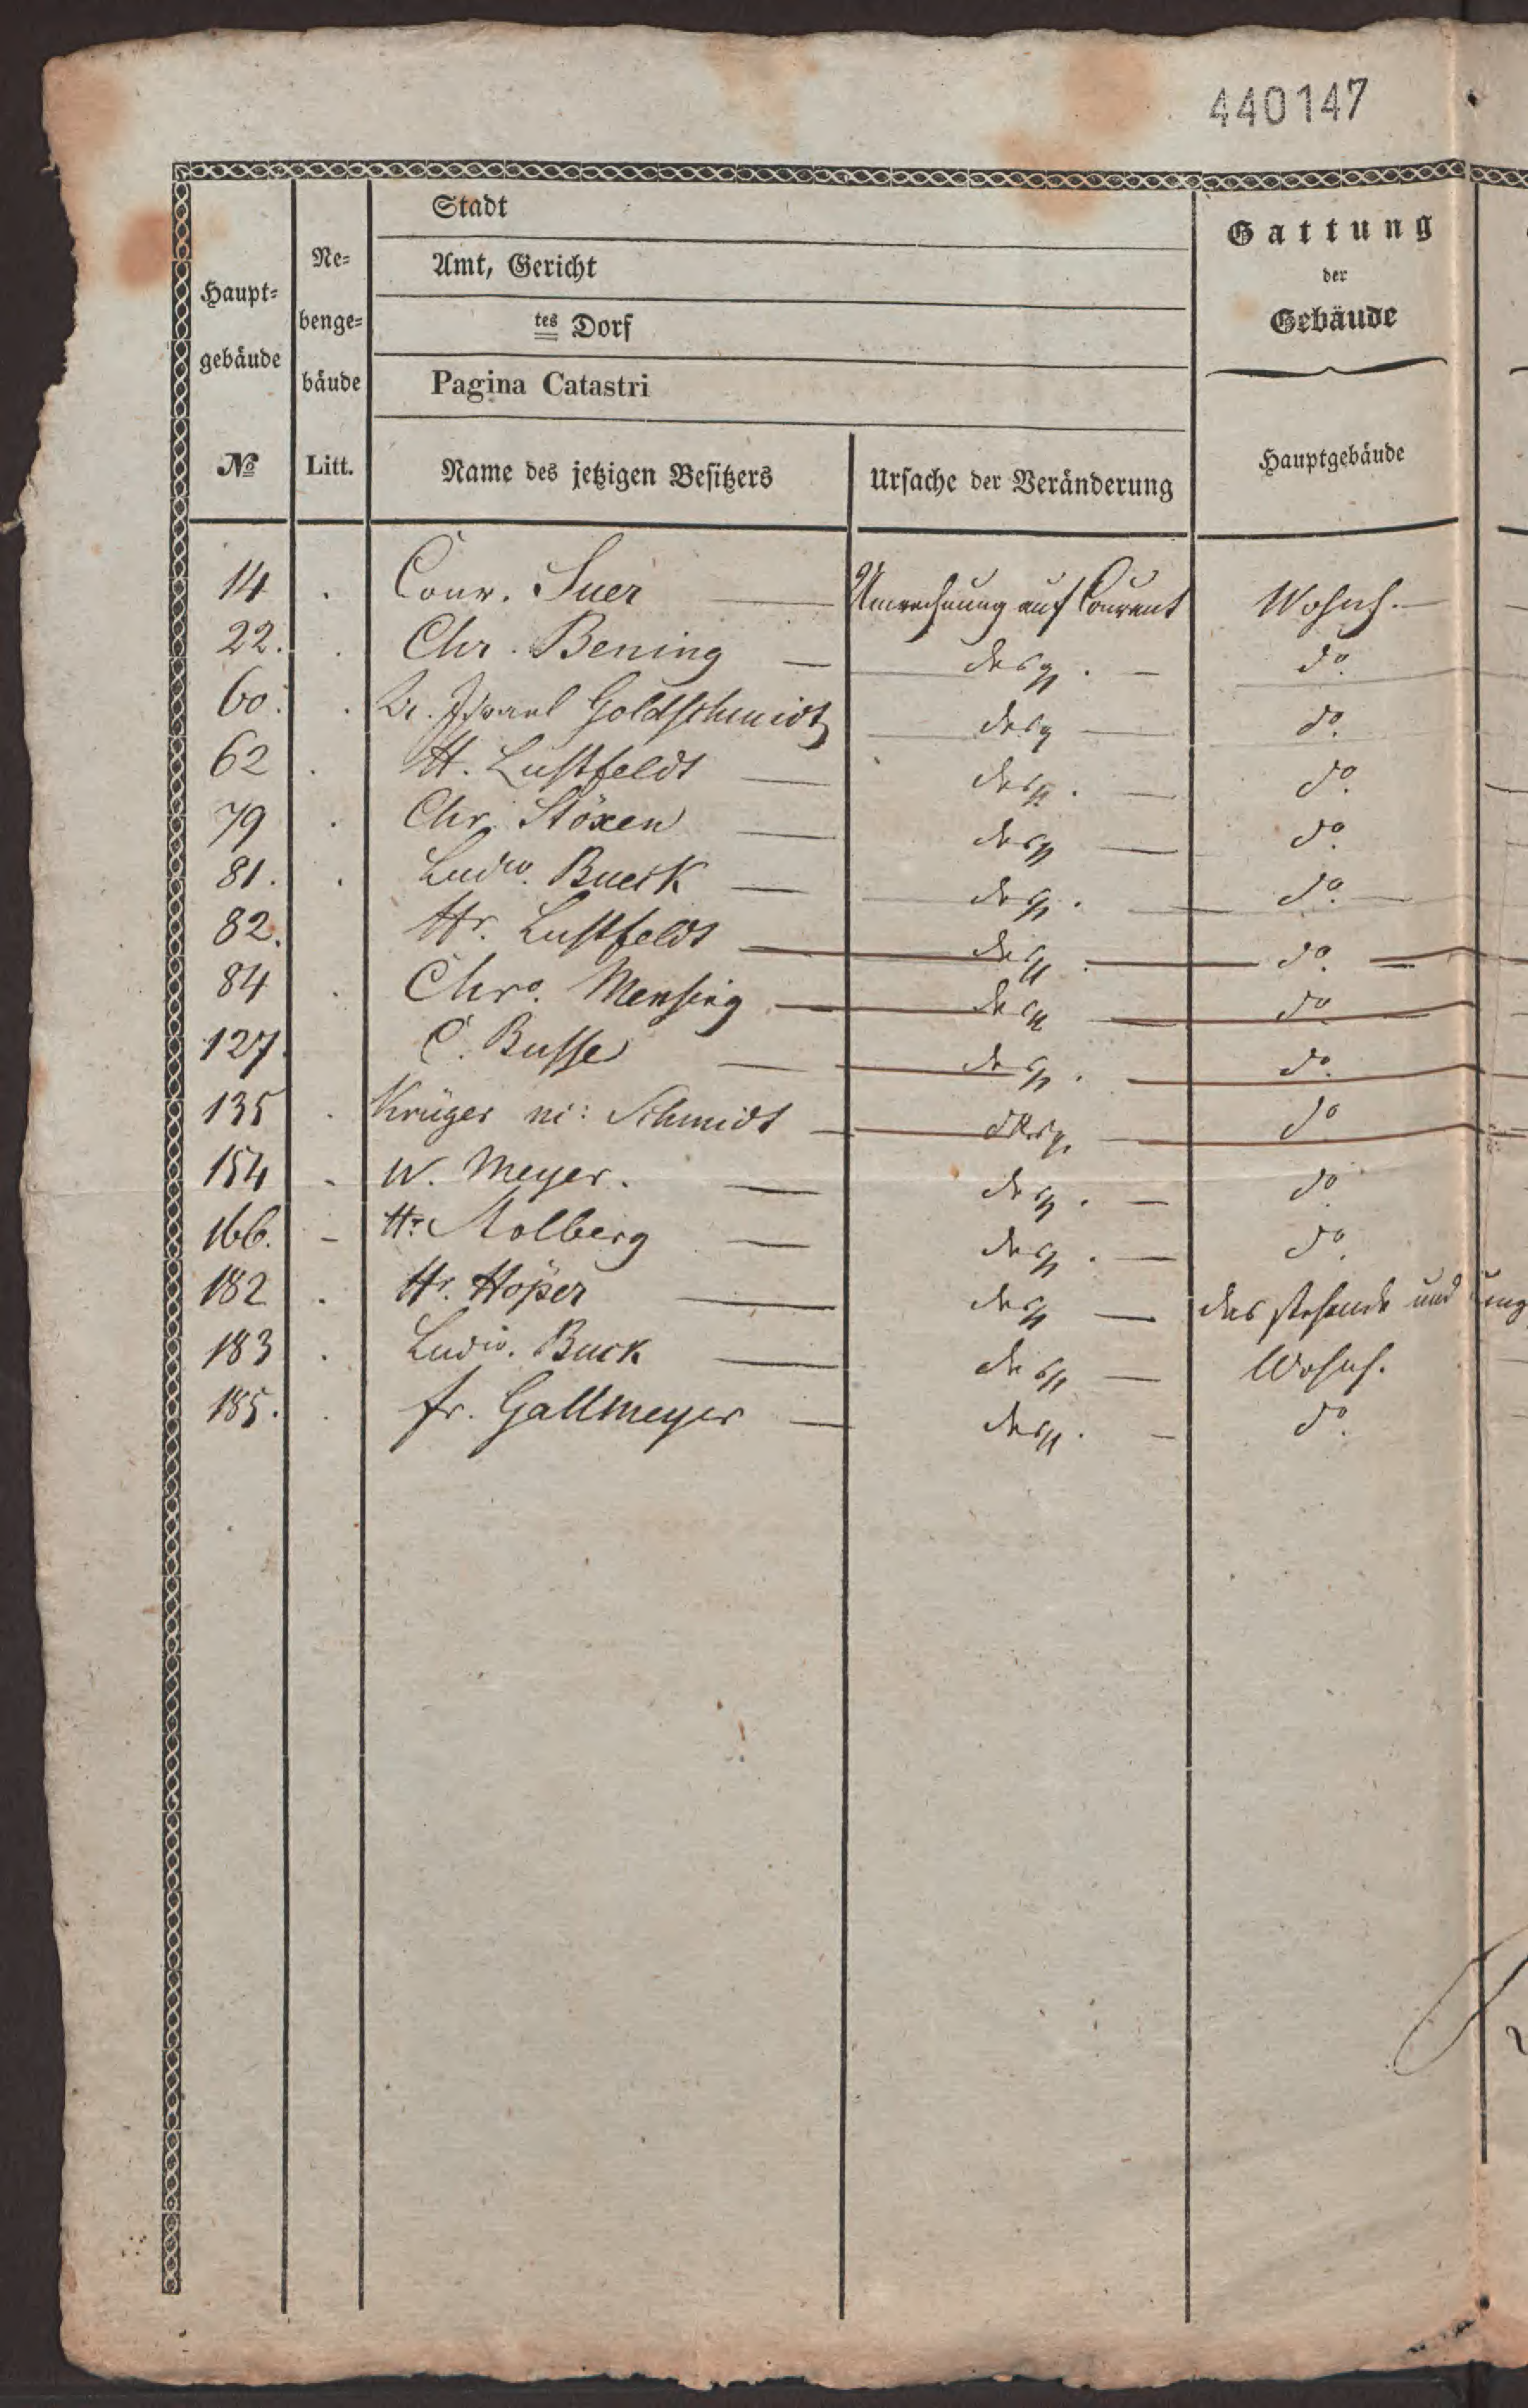 440147
Haupt=
gebäude
№
Ne=
benge=
bäude
Litt.
Stadt
Amt, Gericht
tes Dorf
Pagina Catastri
Name des jetzigen Besitzers
Ursache der Veränderung
Gattung
der
Gebäude
Hauptgebäude
14 . Conr. Suer — Umrechnung auf Courant Wohnh. —
22. . Chr. Bening — desgl. — do.
60. . Israel Goldschmidt desgl — do.
62 . H. Lustfeldt — desgl. — do.
79 . Chr. Stöxen — desgl — do.
81. . Ludw. Bueck — desgl. — do. —
82. Hr. Lustfeldt — desgl. — do. —
84 . Chr. Mensing — desgl — do
127. C. Busse — desgl. — do.
135 . Krüger m: Schmidt — desgl. — do
154 . W. Meyer. — desgl. — do
166. - Hr. Molberg — desgl. — do.
182 . Hr. Höper — desgl — das stehende und
183 . Ludw. Buck — desgl — Wohnh.
185. . Fr. Gallmeyer — desgl. — do.